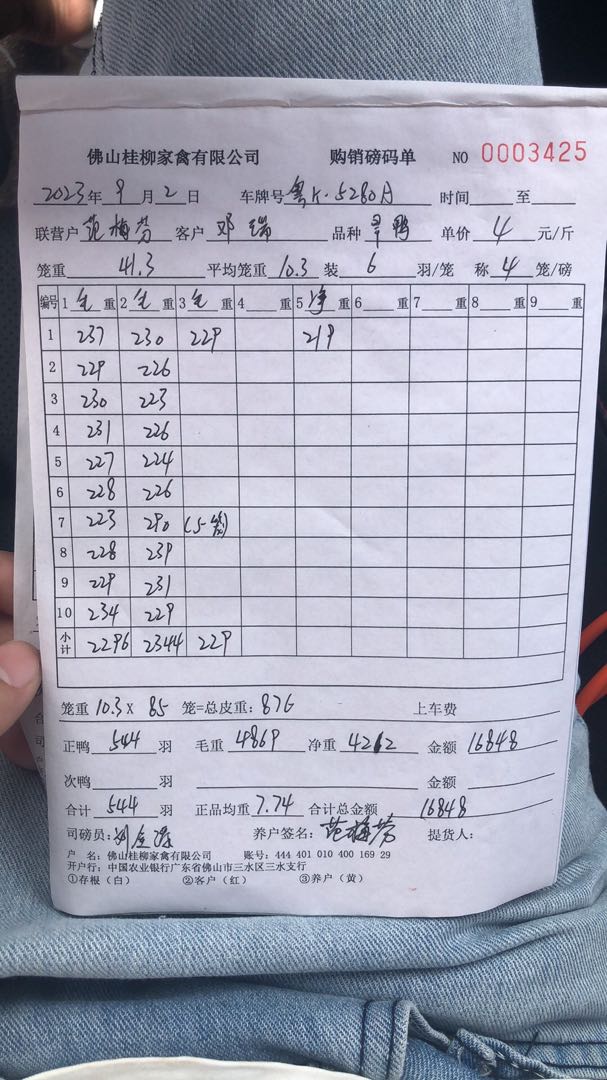 佛山桂柳家禽有限公司 购销磅码单 NO 0003425
2023年9月2日 车牌号粤K·5280A 时间 至
联营户范梅芳 客户邓瑞 品种旱鸭 单价4元/斤
笼重41.3 平均笼重10.3装6羽/笼 称4笼/磅
编号 1毛重 2毛重 3毛重 4重 5净重 6重 7重 8重 9重
1 237 230 229 219
2 229 226
3 230 223
4 231 226
5 227 224
6 228 226
7 223 290 (5笼)
8 228 239
9 229 231
10 234 229
小计 2296 2344 229
笼重10.3×85笼=总皮重:876 上车费
正鸭544羽 毛重4869 净重4212 金额16848
次鸭 羽 金额
合计544羽 正品均重7.74 合计总金额16848
司磅员:刘金 养户签名:范梅芳 提货人:
户 名:佛山桂柳家禽有限公司 账号:444 401 010 400 169 29
开户行:中国农业银行广东省佛山市三水区三水支行
①存根(白) ②客户(红) ③养户(黄)